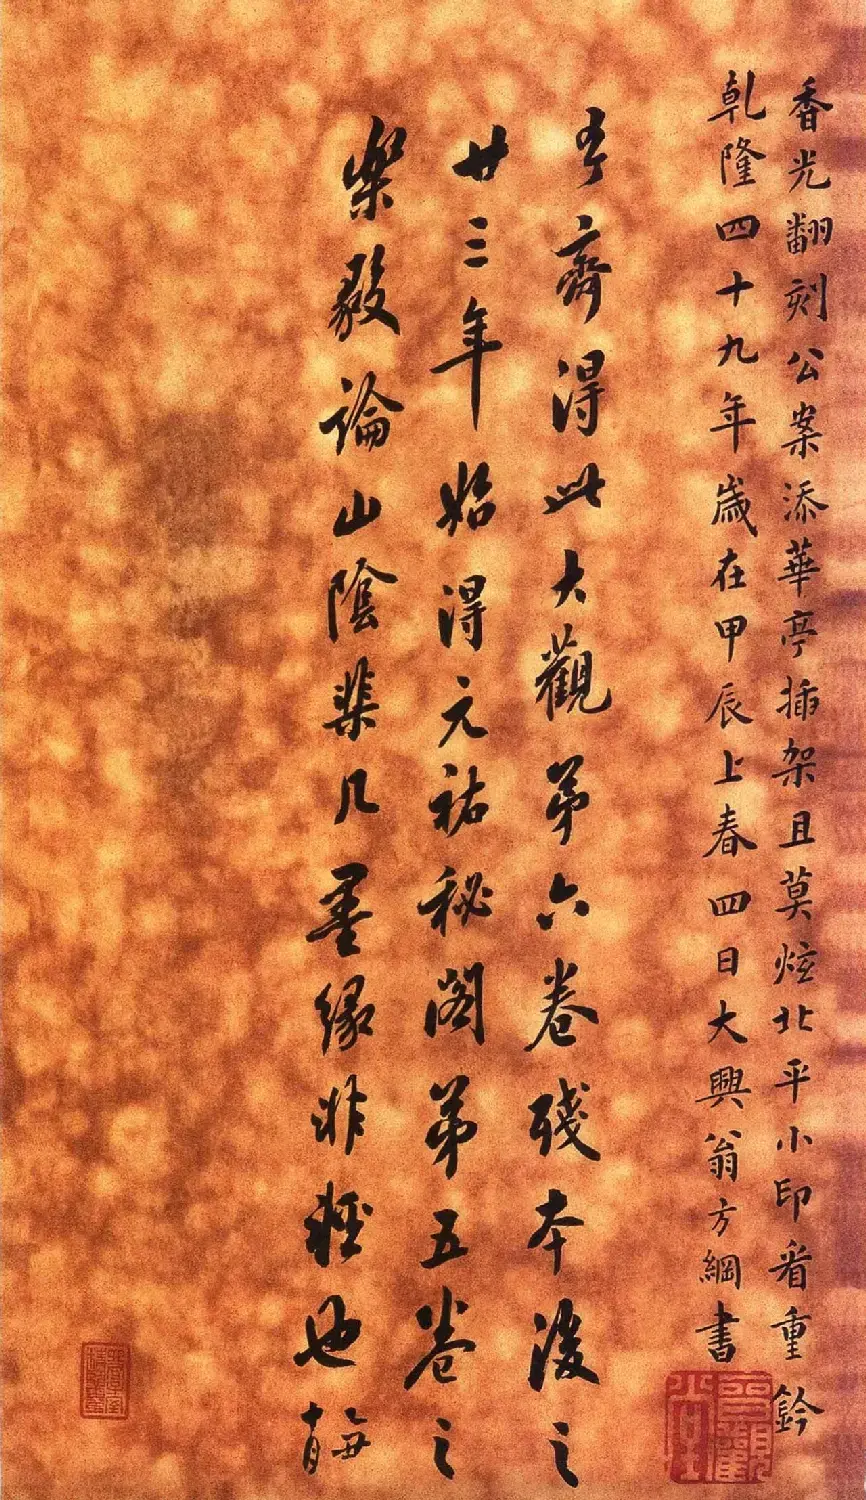 香光翻刻公案添華亭插架且莫炫北平小印看重鈐
乾隆四十九年歲在甲辰上春四日大興翁方綱書
予齋得此大觀第六卷殘本後之
廿三年始得元祐秘閣第五卷之
樂毅論山陰棐几墨緣非輕也